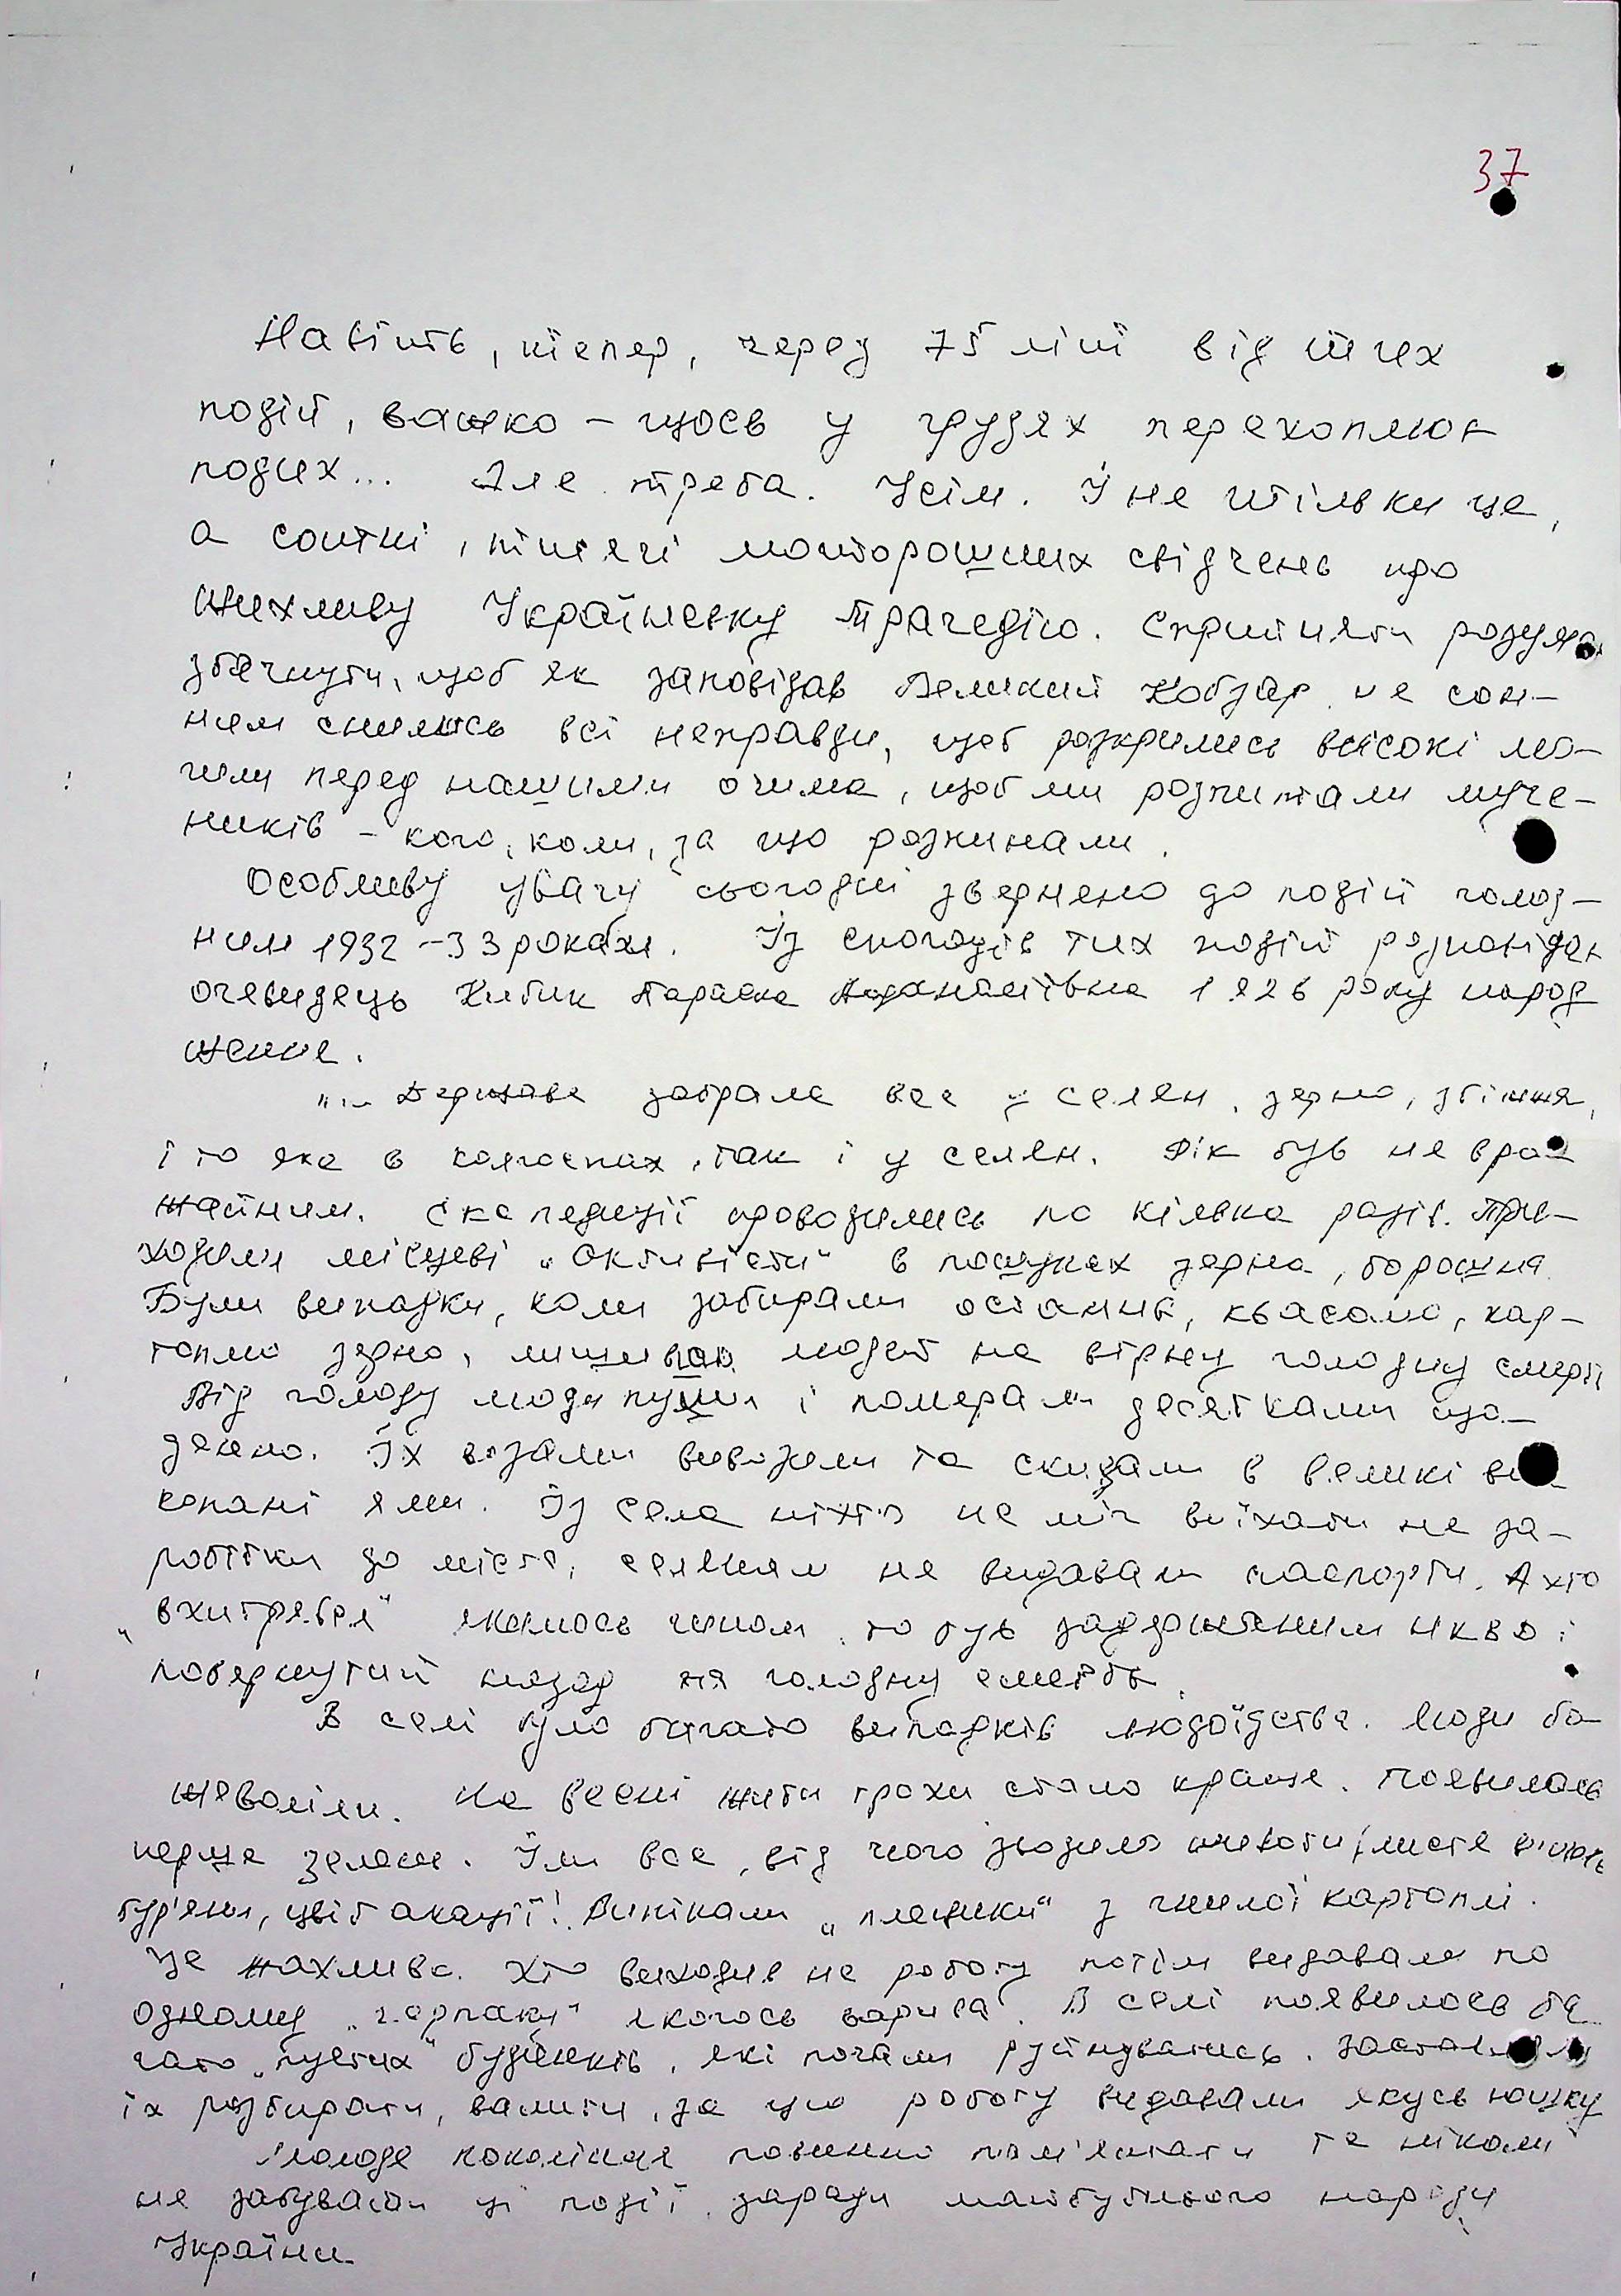 37
Навіть, тепер, через 75 літ від тих
подій, важко – щось у грудях перехоплює
подих... Але треба. Усім. І не тільки це,
а сотні, тисячі моторошних свідчень про
жахливу Українську трагедію. Сприйняти розумом
збагнути, щоб як заповідав Великий Кобзар не сон-
ним снились всі неправди, щоб розкрились високі мо-
гили перед нашими очима, щоб ми розпитали муче-
ників – кого, коли, за що розпинали.
Особливу увагу сьогодні звернено до подій голод-
ним 1932 – 33 роках. Із спогадів тих подій розповідає
очевидець Параска 1926 року народ
ження.
"... Держава забрала все у селян, зерно, збіжжя,
і то яке в колгоспах, так і у селян. Рік був не вро
жайним. Експедиції проводились по кілька разів. При-
ходили місцеві „активісти" в пошуках зерна, борошня
Були випадки, коли забирали останнє, квасолю, кар-
топлю зерно, людей на вірну голодну смерть
Від голоду люди пухли і помирали десятками що-
денно. Їх возами вивозили та скидали в великі ви
копані ями. Із села ніхто не міг виїхати не за-
робітки до міста, селянам не видавали паспорти. А хто
„вхитрявся" якимось чином, то був НКВД і
повернутий назад на голодну смерть.
В селі було багато випадків людоїдства. Люди бо
жеволіли. На весні жити трохи стало краще. Появилась
перша зелень. Їли все, від чого листя
бур'яни, цвіт акації! Випікали „пляцики" з гнилої картоплі.
Це жахливо. Хто виходив на роботу потім видавали по
одному „черпаку" якогось варива. В селі появилось ба
гато „пустих" будинків, які почали руйнуватись. заставляли
їх розбирати, валити, за цю роботу видавали якусь юшку
Молоде покоління повинно пам'ятати та ніколи
не забувати ці події заради майбутнього народу
України